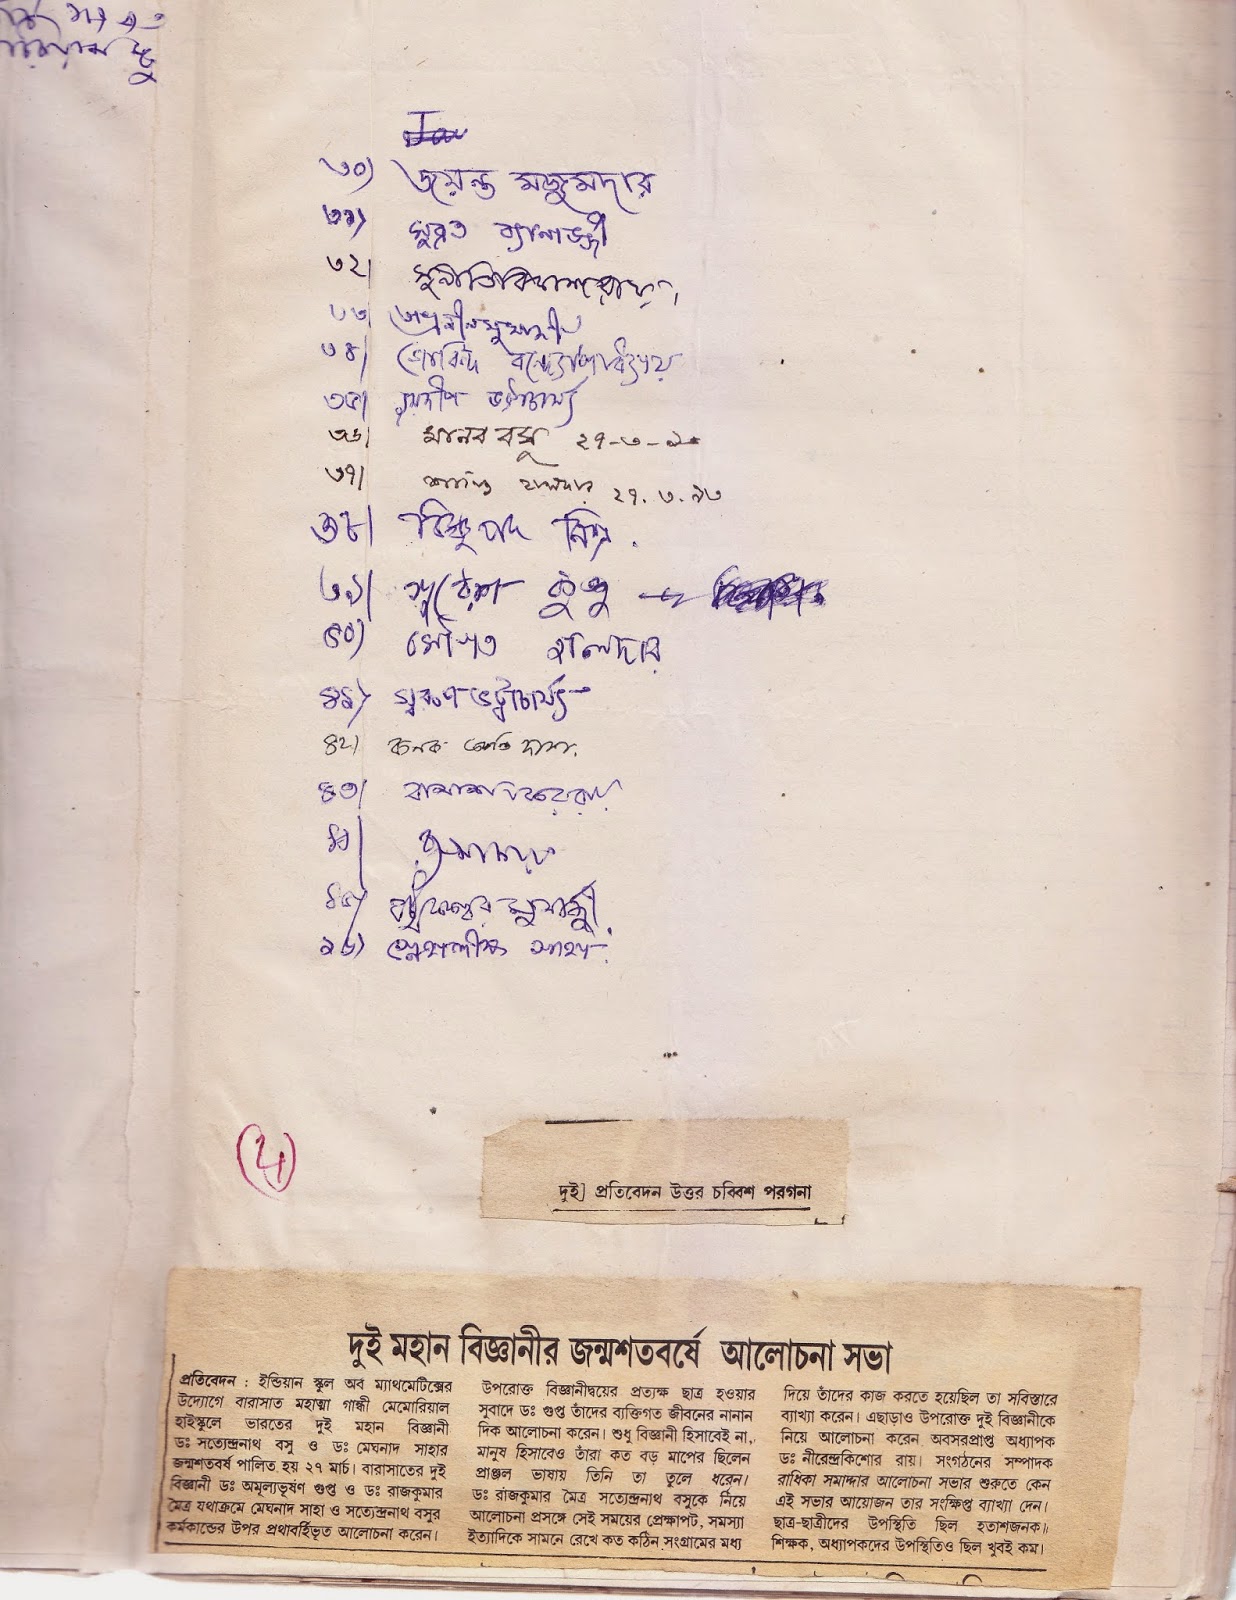 ৩০) জয়ন্ত মজুমদার
৩১) সুব্রত ব্যানার্জ্জী
৩২|
৩৩|
৩৪| গোবিন্দ বন্দ্যোপাধ্যায়
৩৫| ভট্টাচার্য্য
৩৬| মানব বসু ২৭-৩-৯৩
৩৭| হালদার ২৭.৩.৯৩
৩৮| বিষ্ণুপদ মিশ্র.
৩৯| কুণ্ডু
৪০) হালদার
৪১) ভট্টাচার্য্য
৪২|
৪৩|
৪৪|
৪৫| মুখার্জ্জী
৪৬) সাহা.
(৫)
দুই] প্রতিবেদন উত্তর চব্বিশ পরগনা
দুই মহান বিজ্ঞানীর জন্মশতবর্ষে আলোচনা সভা
প্রতিবেদন : ইন্ডিয়ান স্কুল অব ম্যাথমেটিক্সের
উদ্যোগে বারাসাত মহাত্মা গান্ধী মেমোরিয়াল
হাইস্কুলে ভারতের দুই মহান বিজ্ঞানী
ডঃ সত্যেন্দ্রনাথ বসু ও ডঃ মেঘনাদ সাহার
জন্মশতবর্ষ পালিত হয় ২৭ মার্চ। বারাসাতের দুই
বিজ্ঞানী ডঃ অমূল্যভূষণ গুপ্ত ও ডঃ রাজকুমার
মৈত্র যথাক্রমে মেঘনাদ সাহা ও সত্যেন্দ্রনাথ বসুর
কর্মকান্ডের উপর প্রথাবর্হিভূত আলোচনা করেন।
উপরোক্ত বিজ্ঞানীদ্বয়ের প্রত্যক্ষ ছাত্র হওয়ার
সুবাদে ডঃ গুপ্ত তাঁদের ব্যক্তিগত জীবনের নানান
দিক আলোচনা করেন। শুধু বিজ্ঞানী হিসাবেই না,
মানুষ হিসাবেও তাঁরা কত বড় মাপের ছিলেন
প্রাঞ্জল ভাষায় তিনি তা তুলে ধরেন।
ডঃ রাজকুমার মৈত্র সত্যেন্দ্রনাথ বসুকে নিয়ে
আলোচনা প্রসঙ্গে সেই সময়ের প্রেক্ষাপট, সমস্যা
ইত্যাদিকে সামনে রেখে কত কঠিন সংগ্রামের মধ্য
দিয়ে তাঁদের কাজ করতে হয়েছিল তা সবিস্তারে
ব্যাখ্যা করেন। এছাড়াও উপরোক্ত দুই বিজ্ঞানীকে
নিয়ে আলোচনা করেন অবসরপ্রাপ্ত অধ্যাপক
ডঃ নীরেন্দ্রকিশোর রায়। সংগঠনের সম্পাদক
রাধিকা সমাদ্দার আলোচনা সভার শুরুতে কেন
এই সভার আয়োজন তার সংক্ষিপ্ত ব্যাখ্যা দেন।
ছাত্র-ছাত্রীদের উপস্থিতি ছিল হতাশজনক।
শিক্ষক, অধ্যাপকদের উপস্থিতিও ছিল খুবই কম।